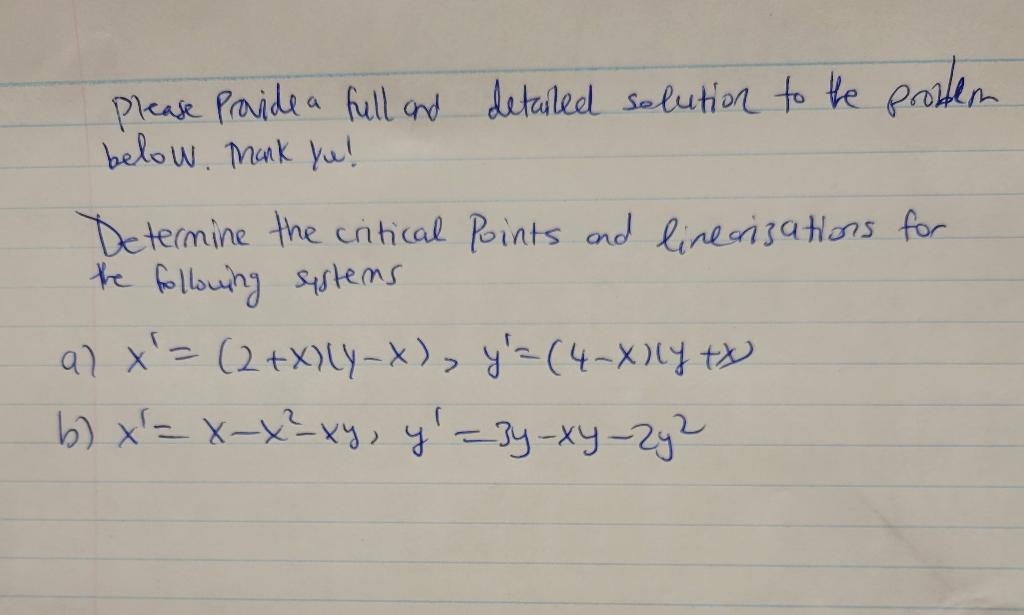 Please Provide a full and detailed solution to the problem
below. Thank you!
Determine the critical Points and linearizations for
the following systems
a) x' = (2+x)(y-x), y' = (4-x)(y+x)
b) x' = x-x²-xy, y' = 3y-xy-2y²